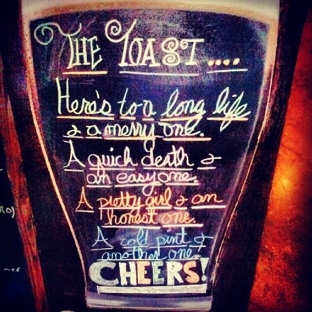 The Toast....
Here's to a long life
& a merry one.
A quick death &
an easy one.
A pretty girl & an
honest one.
A cold pint &
another one!
CHEERS!